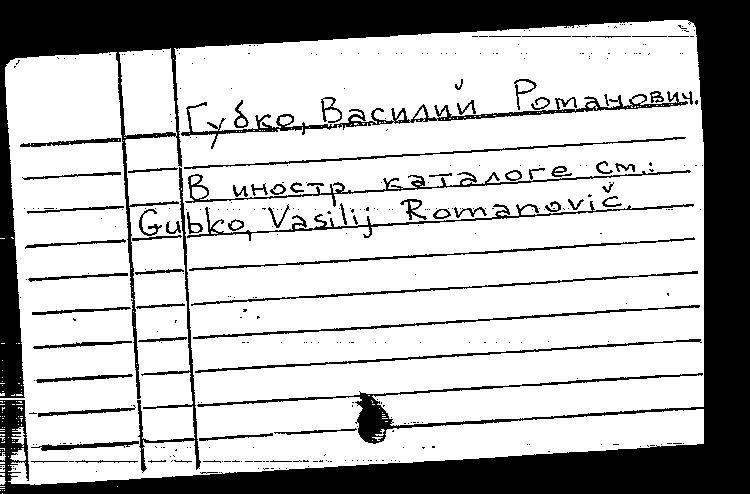 Губко, Василий Романович.
В иностр. каталоге см.:
Gubko, Vasilij Romanovič.